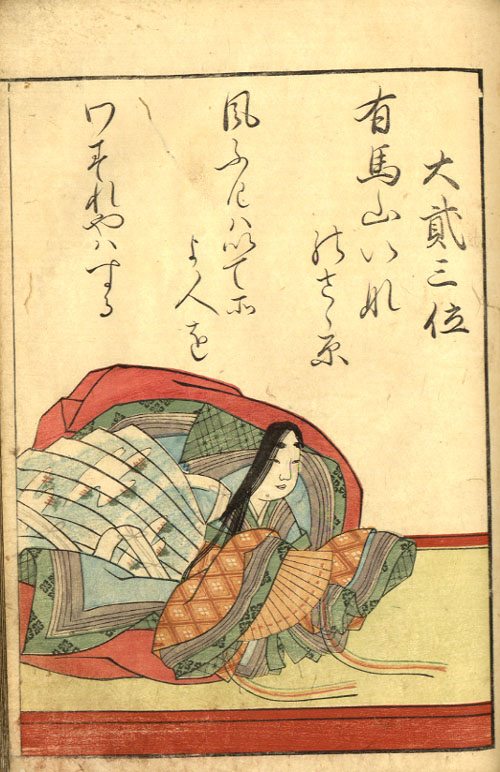 大貳三位
有馬山いな
のさゝ原
風ふけはいてそ
よ人を
わすれやはする